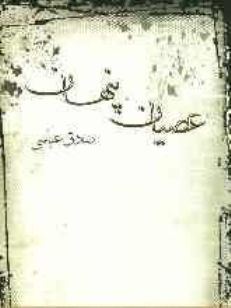 عصیان پنهان
صادق عباسی